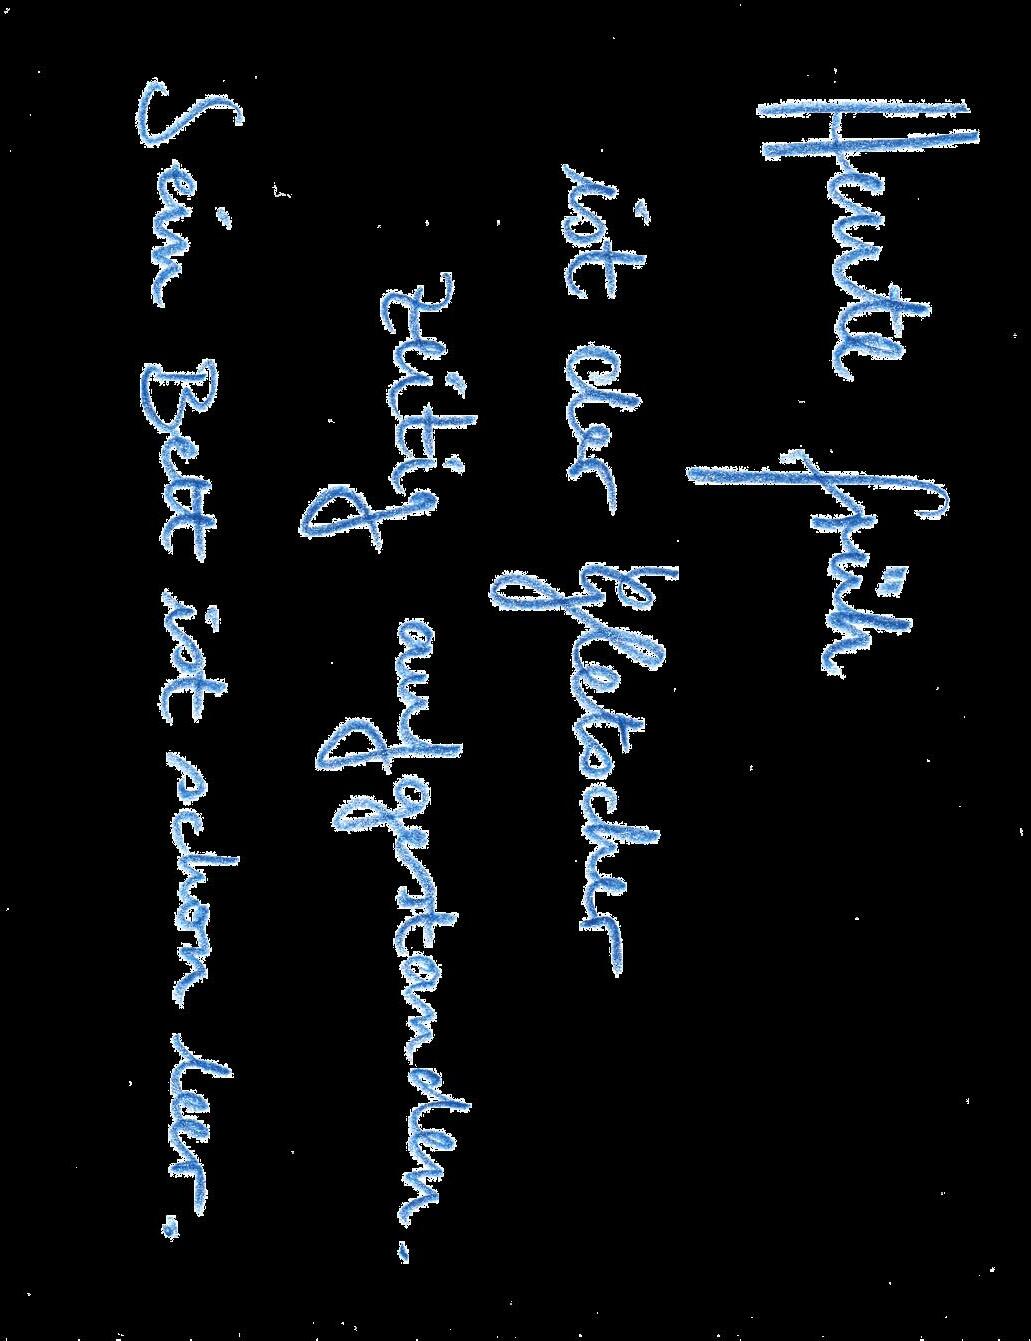 Heute früh
ist der Gletscher
zeitig aufgestanden.
Sein Bett ist schon leer.